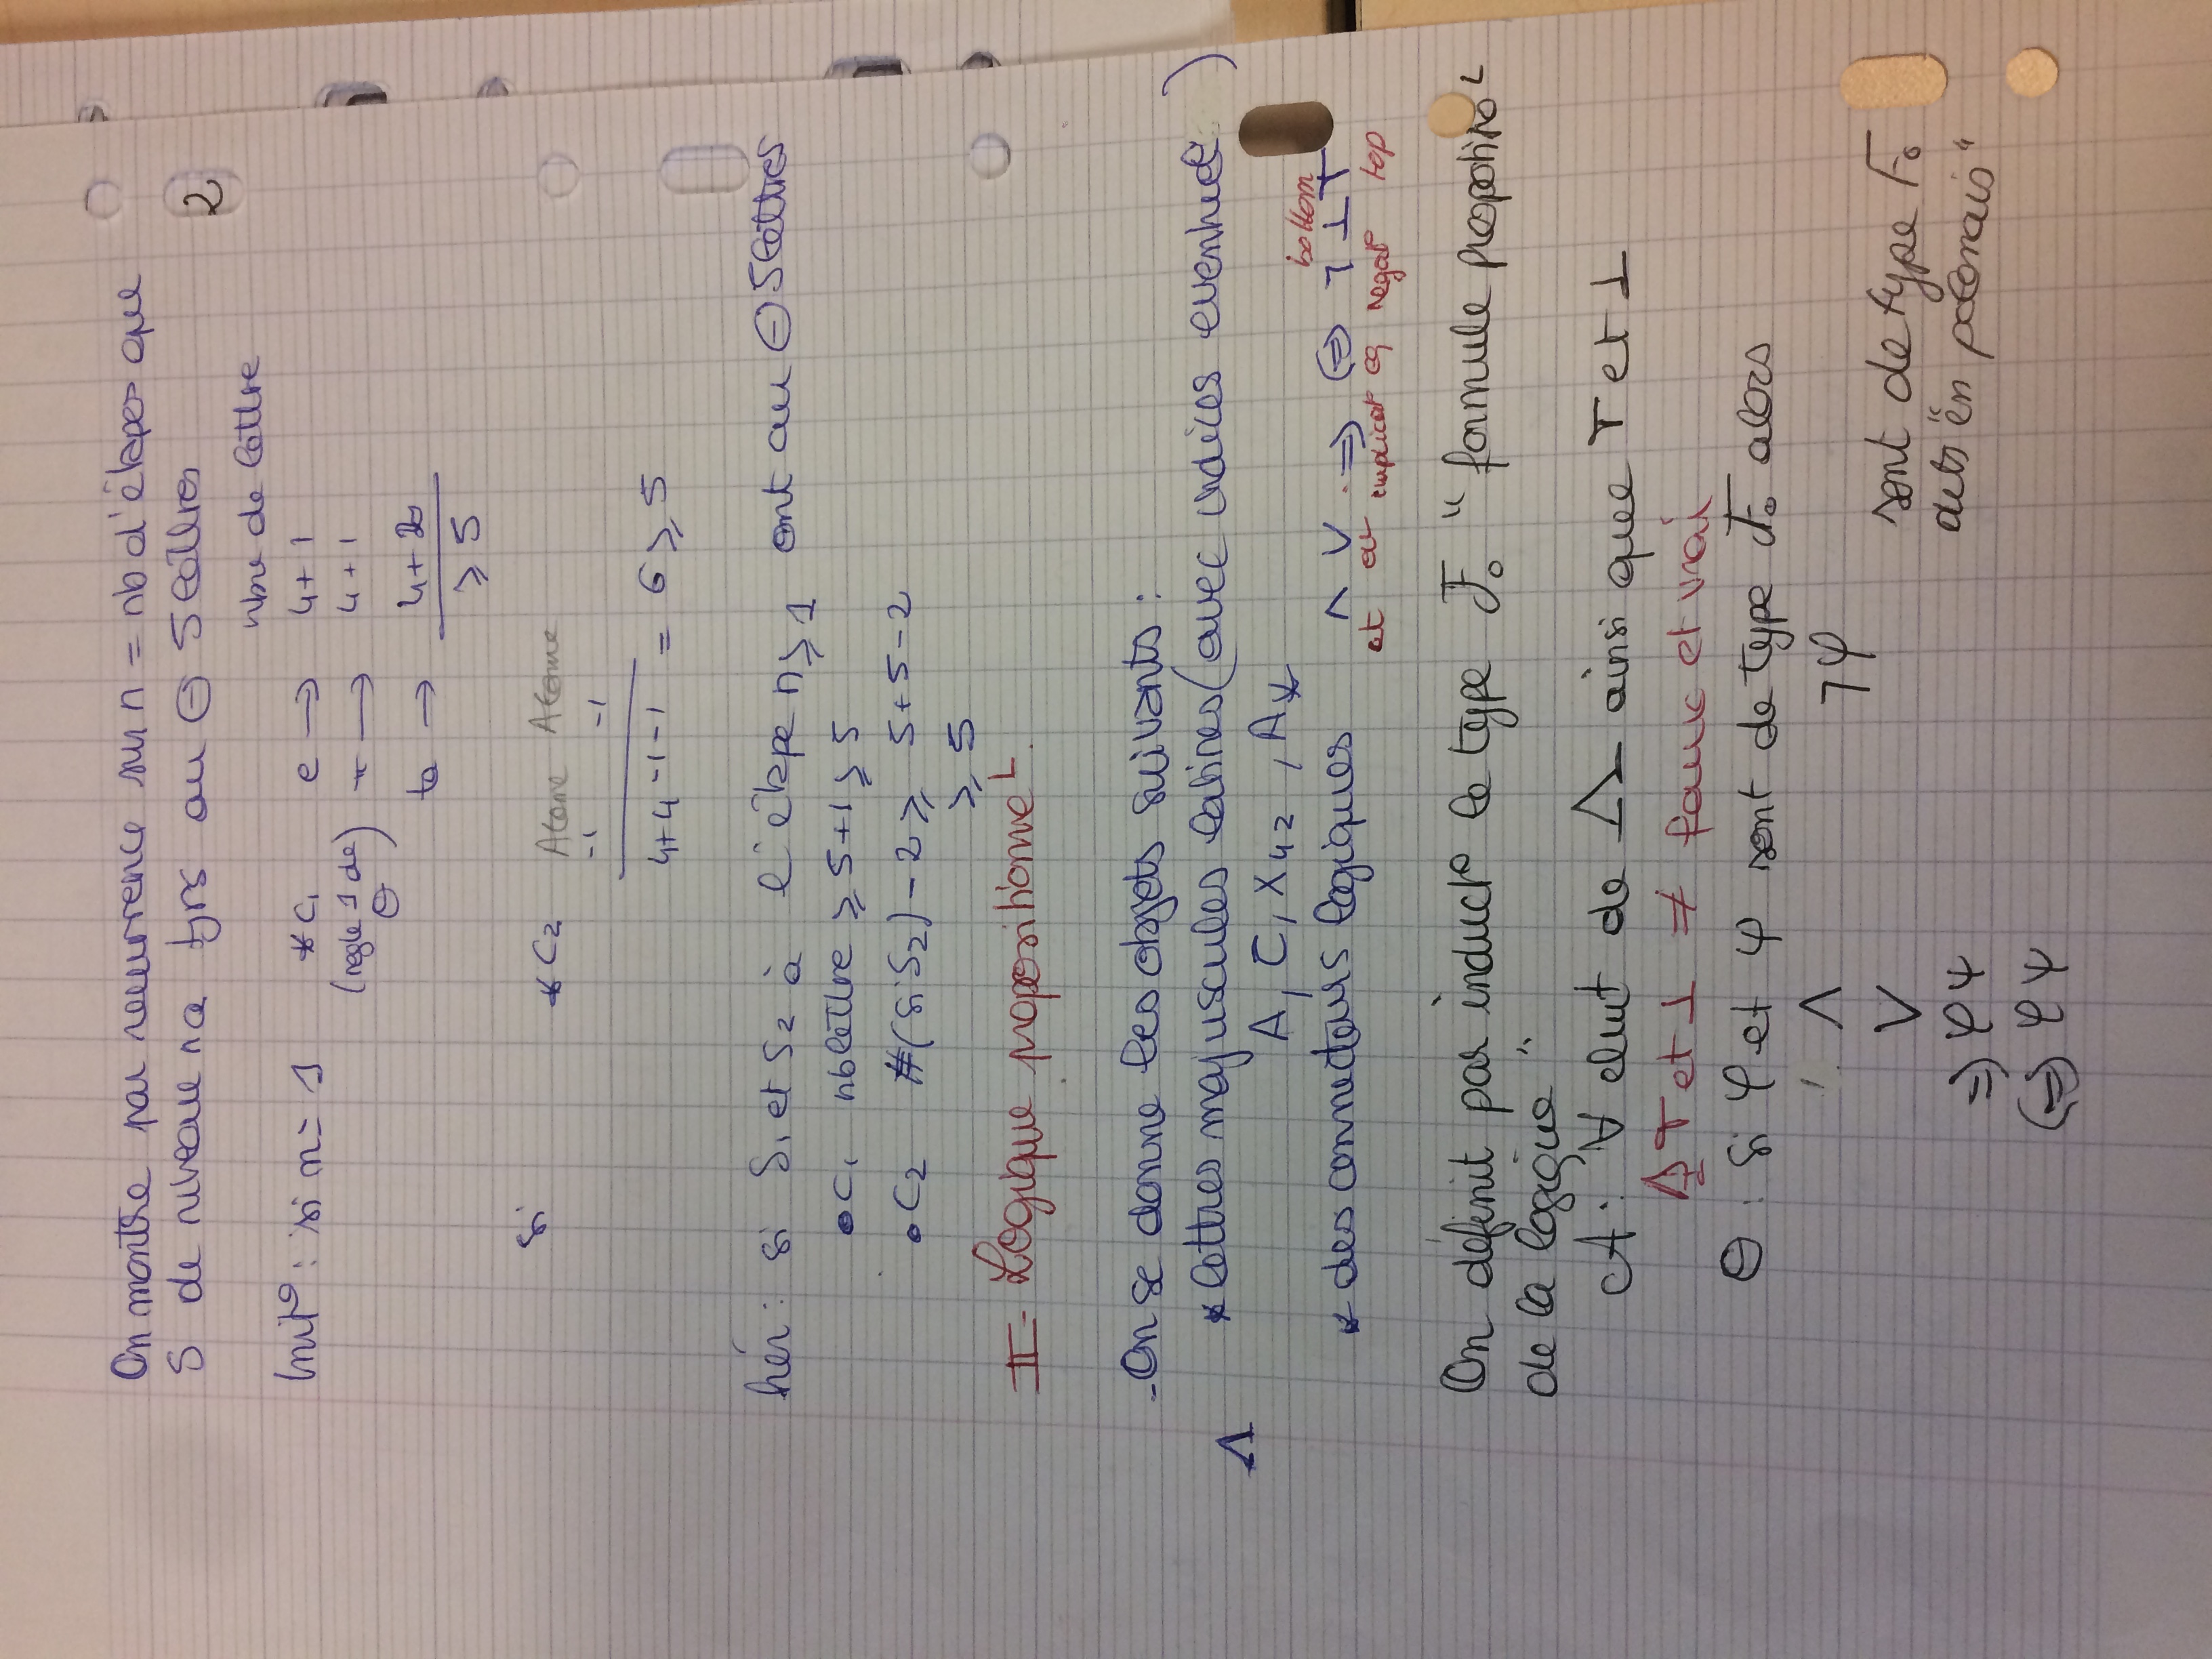 On montre par recurrence sur n = nb d'étapes que
S de niveau n a tjrs au ⊖ 5 lettres
2
nbre de lettre
Init° : si n = 1 * C₁ e → 4+1
(règle 1 de Θ) π → 4+1
ta → 4+2
⩾ 5
Si * C₂ Atome Atome
-1 -1
4+4 -1-1 = 6 ⩾ 5
hér : si S₁ et S₂ à l'étape n ⩾ 1 ont au ⊖ 5 lettres
• C₁ nb lettre ⩾ 5+1 ⩾ 5
• C₂ #(S₁S₂) - 2 ⩾ 5+5-2
⩾ 5
II - Logique propositionneL.
- On se donne les objets suivants :
* lettres majuscules latines (avec indices eventuel )
Λ
A, C, X₄₂, A*
bottom
* des connecteurs logiques ∧ ∨ ⇒ ⇔ ¬ ⊥ ⊤
et ou implicat° eq negat° top
On définit par induct° le type F₀ "formule
de la logique"
A : ∀ elmt de Λ ainsi que ⊤ et ⊥
⚠ ⊤ et ⊥ ≠ faux et vrai
Θ : si φ et ψ sont de type F₀ alors
∧ ¬φ
∨ sont de type F₀
⇒ φψ dits "en polonais"
⇔ φψ